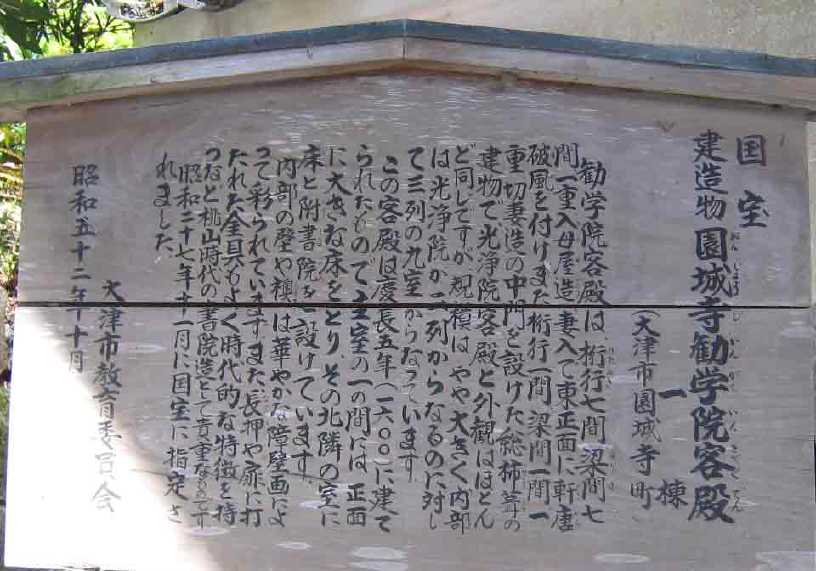 国宝
建造物 園城寺勧学院客殿
おんじょうじかんがくいんきゃくでん
一棟
(大津市園城寺町)
勧学院客殿は、桁行七間、梁間七
間一重入母屋造、妻入で東正面に軒唐
破風を付けまた桁行一間、梁間一間、一
重切妻造の中門を設けた総柿葺の
建物で光浄院客殿と外観はほとん
ど同じですが、規模はやや大きく内部
は光浄院が二列からなるのに対し
て三列の九室からなっています。
この客殿は慶長五年(一六〇〇)に建て
られたもので主室の一の間には、正面
に大きな床をとり、その北隣の室に
床と附書院を設けています。
内部の壁や襖は華やかな障壁画によ
って彩られています。また長押や扉に打
たれた金具もよく時代的な特徴を持
つなど桃山時代の書院造として貴重なものです
昭和二十七年十一月に国宝に指定さ
れました。
昭和五十二年十月
大津市教育委員会